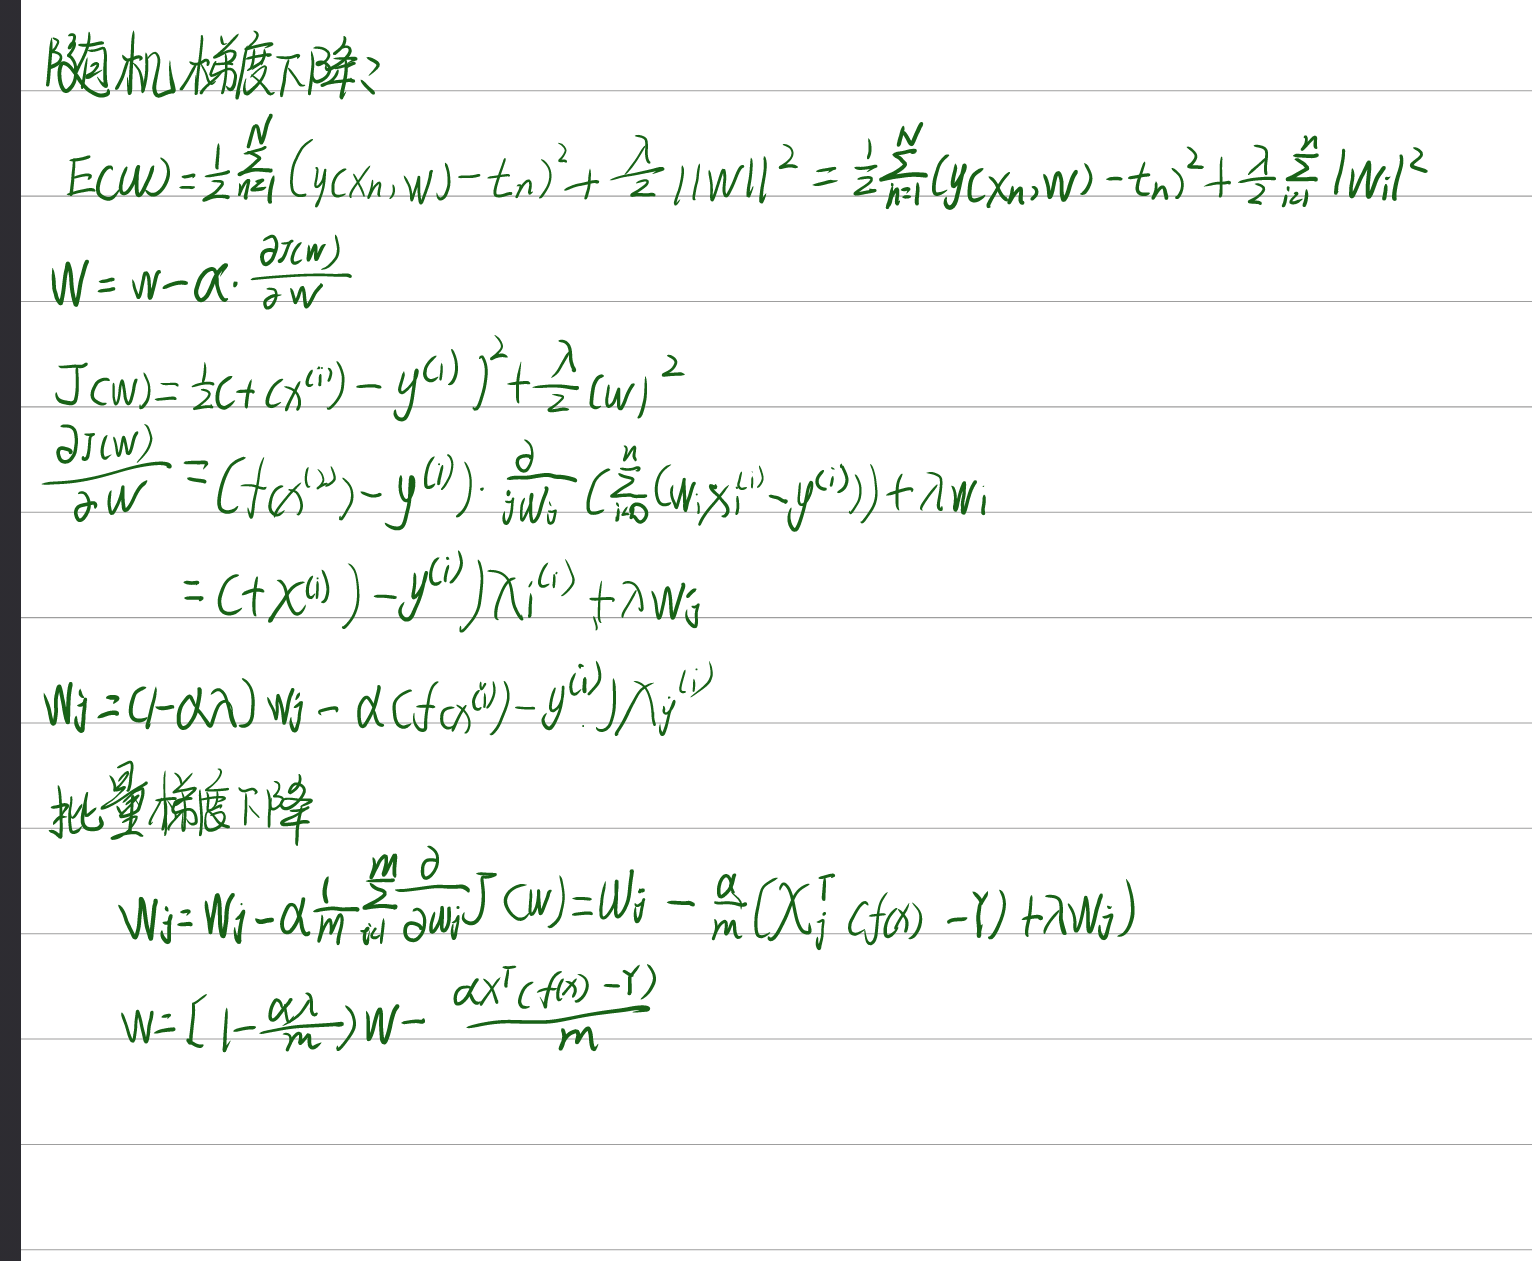 随机梯度下降:
E(W)=1/2 Σ_{n=1}^{N} (y(x_n,W)-t_n)^2 + λ/2 ||W||^2 = 1/2 Σ_{n=1}^{N} (y(x_n,W)-t_n)^2 + λ/2 Σ_{i=1}^{n} |W_i|^2
W = w-α·∂J(W)/∂W
J(W)=1/2(f(x^{(i)})-y^{(i)})^2+λ/2(w)^2
∂J(W)/∂W=(f(x^{(2)})-y^{(i)})·∂/∂W_j(Σ_{i=0}^{n}(W_i x_i^{(i)}-y^{(i)}))+λW_i
=(f x^{(i)})-y^{(i)})x_i^{(i)}+λW_j
W_j=(1-αλ)W_j-α(f(x^{(i)})-y^{(i)})x_j^{(i)}
批量梯度下降
W_j=W_j-α 1/m Σ_{i=1}^{m} ∂/∂w_j J(W)=W_j-α/m(X_j^T(f(x)-Y)+λW_j)
W=[1-αλ/m)W-αX^T(f(x)-Y)/m